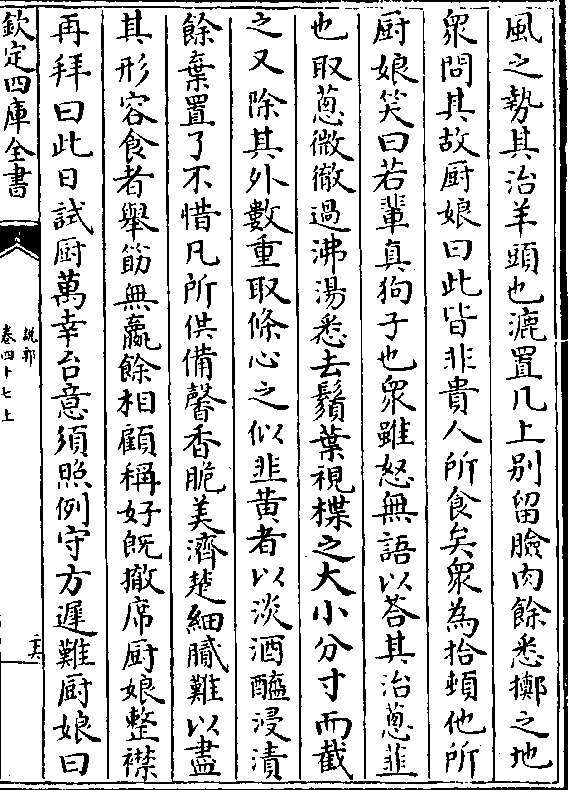 風之勢其治羊頭也漉置几上别留臉肉餘悉擲之地
衆問其故厨娘曰此皆非貴人所食矣衆為拾頓他所
厨娘笑曰若輩真狗子也衆雖怒無語以荅其治葱韮
也取葱微徹過沸湯悉去鬚葉視楪之大小分寸而截
之又除其外數重取條心之似韭黄者以淡酒醯浸漬
餘棄置了不惜凡所供備馨香脆美濟楚細膩難以盡
其形容食者舉筯無贏餘相顧稱好既撤席厨娘整襟
再拜曰此日試厨萬幸台意須照例守方遲難厨娘曰
欽定四庫全書
說郛
卷四十七上